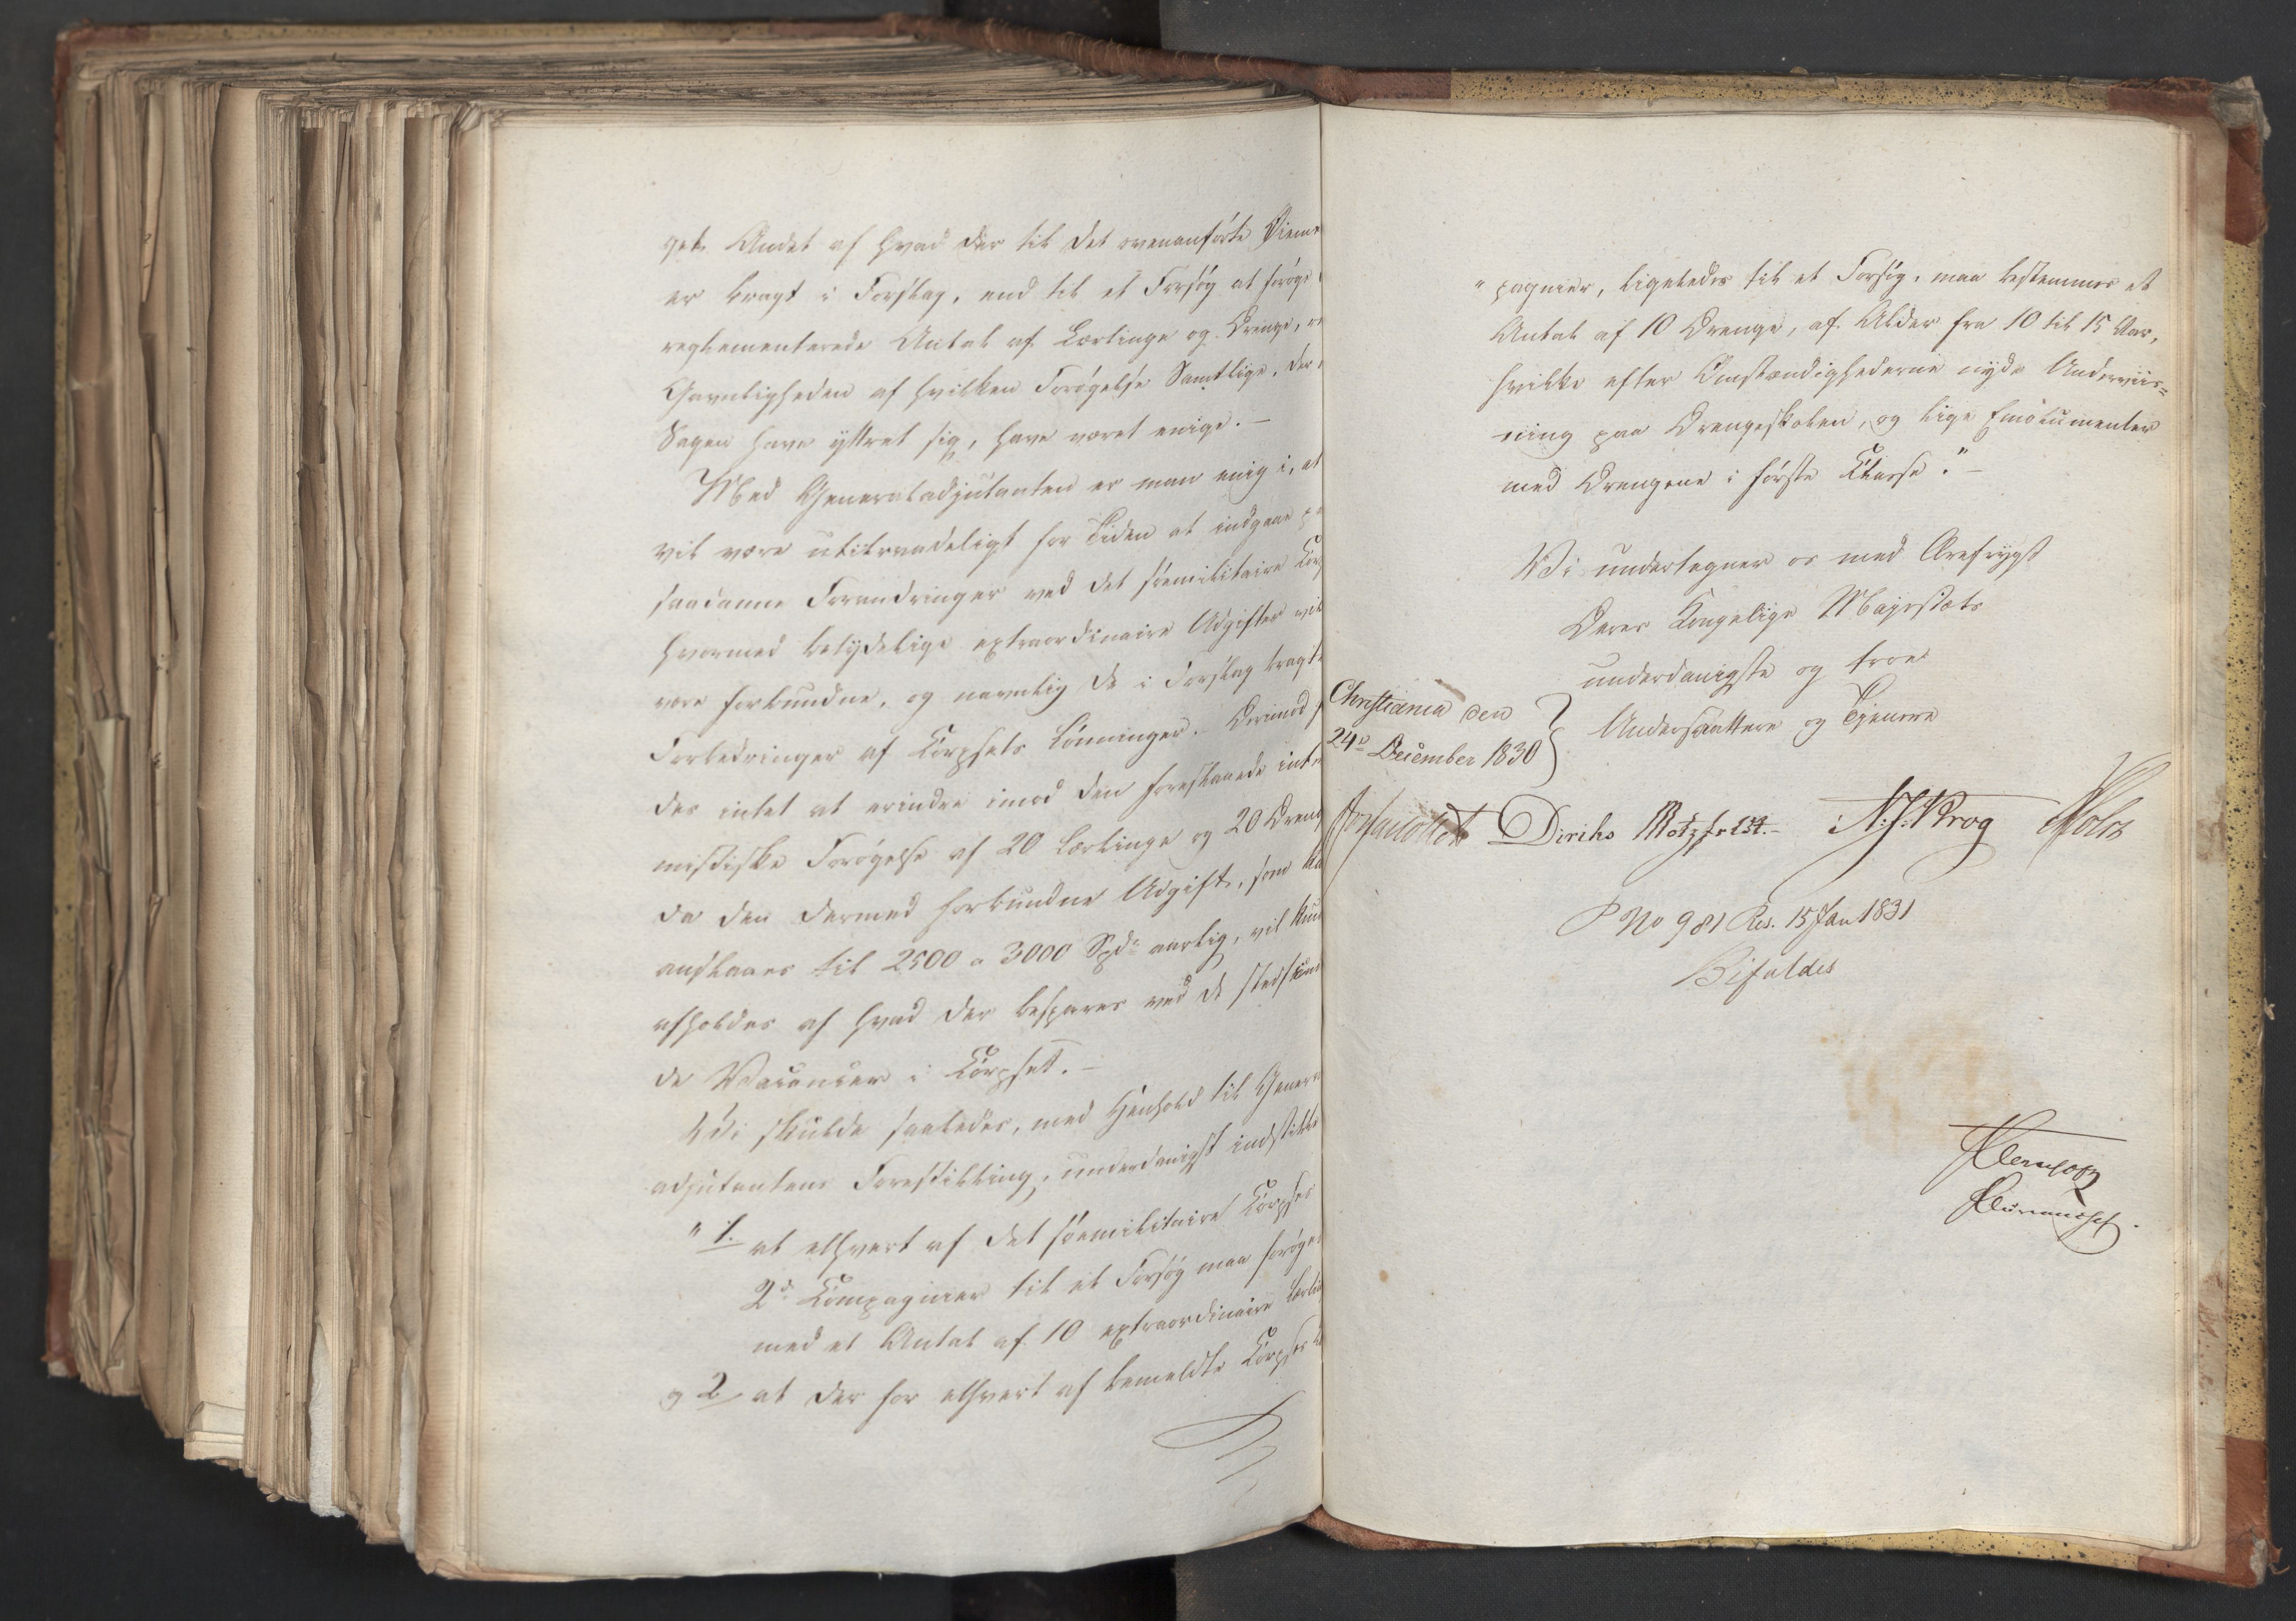 get Andet af hvad der til det ovenanførte Øieme
er bragt i Forslag, end til et Forsøg at forøge
reglementerede Antal af Lærlinge og Drenge, o
Gavnligheden af hvilken Forøgelse Samtlige, der i
Sagen have yttret sig, have været enige. –
Med Generaladjutanten er man enig i, at
vil være utilraadeligt for Tiden at indgaae p
saadanne Forandringer ved det søemilitaire Cor
hvormed betydelige extraordinaire Udgifter vil
være forbundne, og navnlig de i Forslag bragte
Forbedringer af Corpsets Lønninger. Derimod
des intet at erindre imod den foreslaaede inte
mistiske Forøgelse af 20 Lærlinge og 20 Dreng
da den dermed forbundne Udgift, som ka
anslaaes til 2500 a 3000 Spdr aarlig, vil kun
afholdes af hvad der besparer ved de stedfind
de Vacancer i Corpset. –
Vi skulde saaledes, med Henhold til Genera
adjutantens Forestilling, underdanigst indstille
" 1. at ethvert af det søemilitaire Corpses
2de Compagnier til et Forsøg maa forøges
med et Antal af 10 extraordinaire Lærli
og 2 at der for ethvert af bemeldte Corpses
" pagnier, ligeledes til et Forsøg, maa bestemmes et
Antal af 10 Drenge, af Alder fra 10 til 15 Aar,
hvilke efter Omstændighederne nyde Underviis=
ning paa Drengeskolen, og lige Emolumenter
med Drengene i første Classe." –
Vi undertegner os med Ærefrygt
Deres Kongelige Majestæts
underdanigste og troe
Undersaatter og Tjenere
Christiania den
24de December 1830
Diriks Motzfeldt. – N. J. Krog Holst
P No 981 Res. 15 Jan 1831
Bifaldes